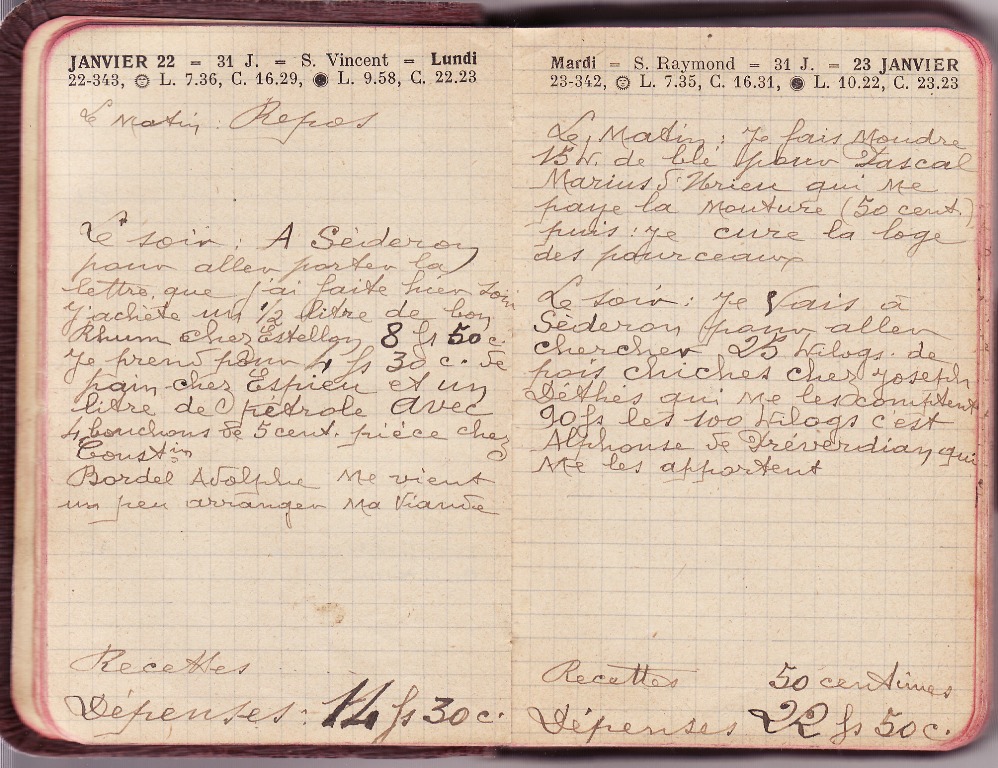 JANVIER 22 = 31 J. = S. Vincent = Lundi
22-343, L. 7.36, C. 16.29, ● L. 9.58, C. 22.23
Le Matin : Repos
Le soir : A Séderon
pour aller porter la
lettre que j'ai faite hier soir
J'achète un 1/2 litre de bon
Rhum chez Estellon 8 fs 50 c.
Je prend pour 4 fs 30 c. de
pain chez Espieu et un
litre de pétrole avec
4 bouchons de 5 cent. pièce chez
Coustin
Bordel Adolphe me vient
un peu arranger ma Viande
Recettes
Dépenses : 14 fs 30 c.
Mardi = S. Raymond = 31 J. = 23 JANVIER
23-342, L. 7.35, C. 16.31, ● L. 10.22, C. 23.23
Le Matin : Je fais Moudre
15 K. de blé pour Pascal
Marius qui me
paye la Mouture (50 cent.)
puis : je cure la loge
des pourceaux
Le soir : Je Vais à
Séderon pour aller
chercher 25 Kilogs. de
pois chiches chez Joseph
Déthès qui me les comptent
90 fs les 100 Kilogs c'est
Alphonse de Dréverdian qui
me les apportent
Recettes 50 centimes
Dépenses 22 fs 50 c.